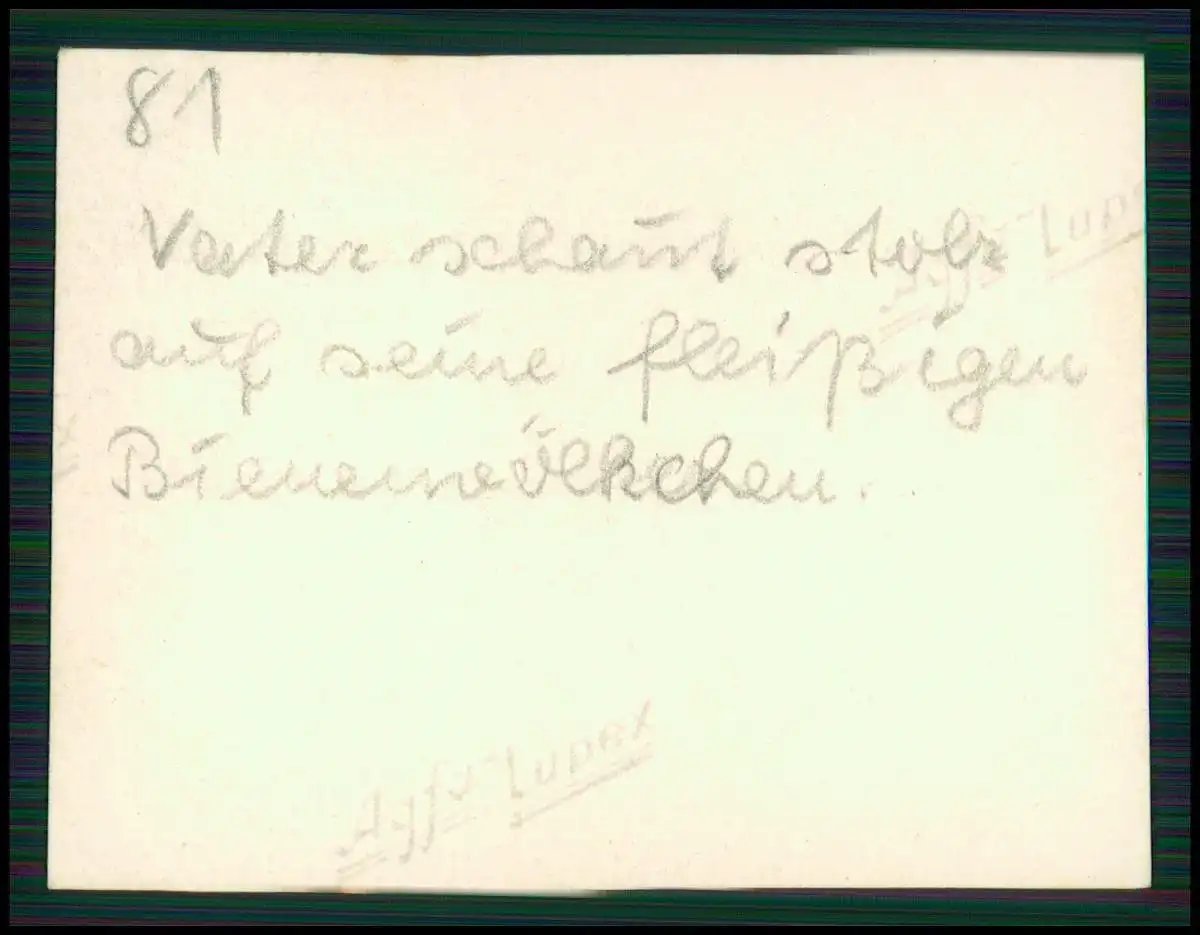 81
Vater schaut stolz
auf seine fleißigen
Bienenvölkchen.
Agfa-Lupex